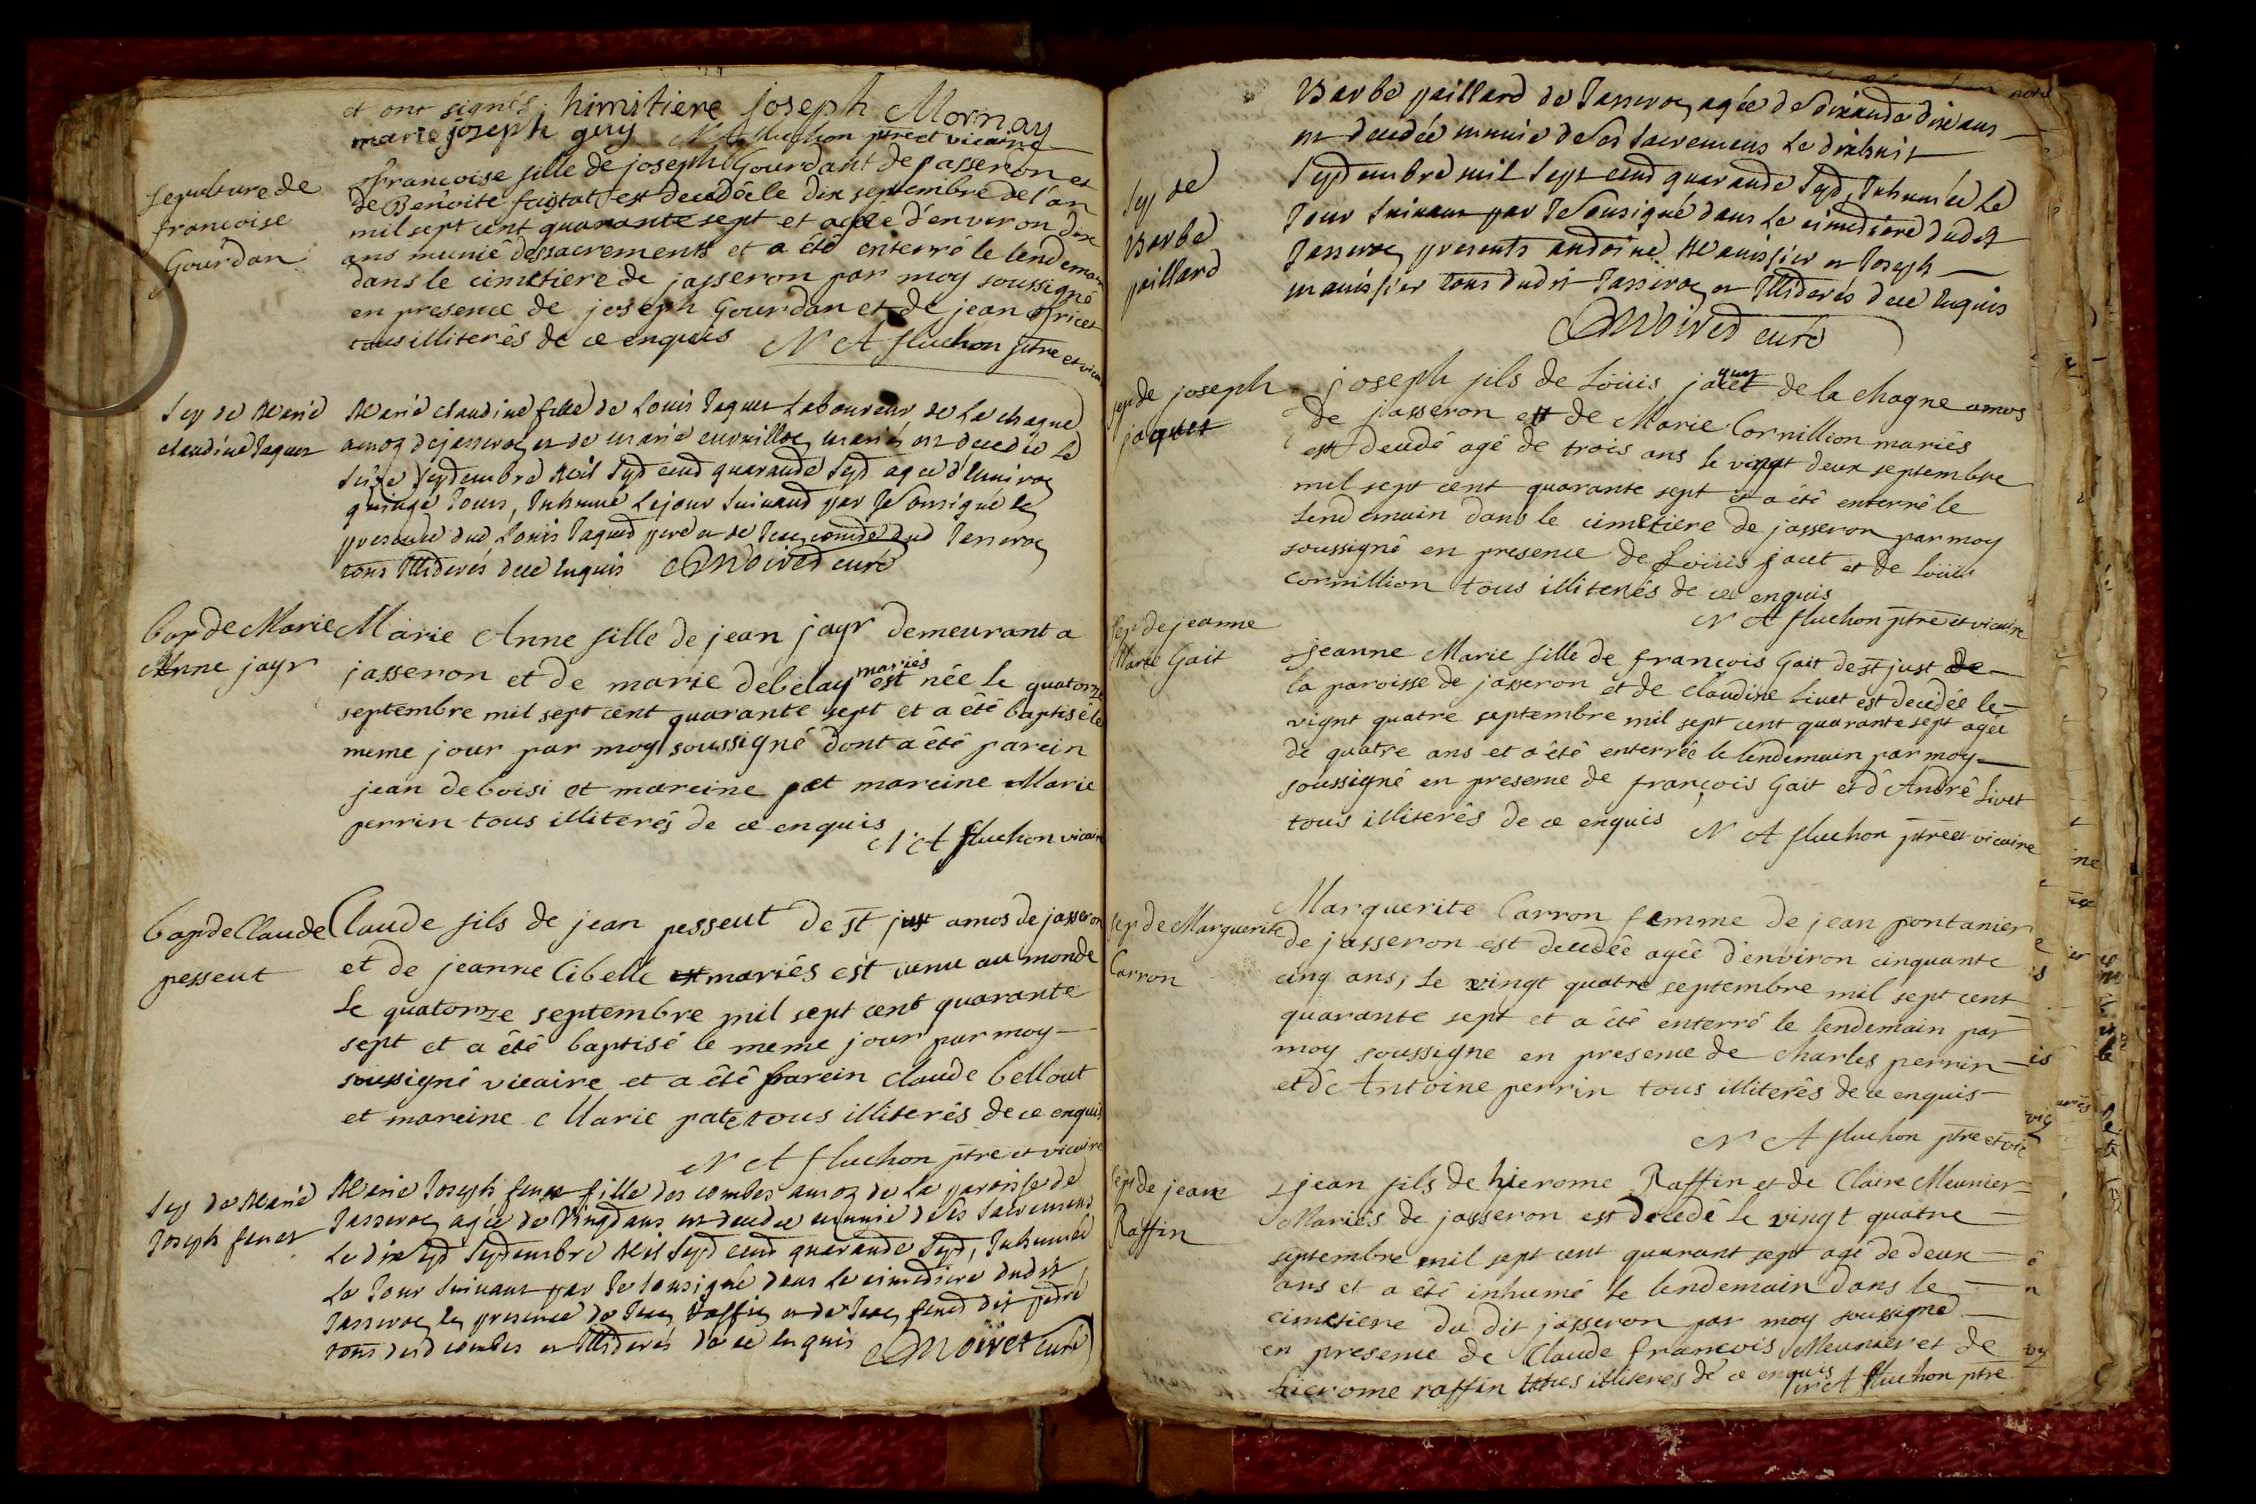 et ont signés, himitiere joseph Mornay
marie joseph guy N A fluchon ptre et vicaire
sepulture de
francoise
Gourdan
françoise fille de joseph Gourdant de jasseron et
de Benoite est decedée le dix septembre de l'an
mil sept cent quarante sept et agée d'environ dix
ans munie des sacrements et a été enterré le lendemain
dans le cimetiere de jasseron par moy soussigné
en presence de joseph Gourdan et de jean
tous illiterés de ce enquis N A fluchon ptre et vicaire
Sep de Marie
claudine Jaquet
Marie claudine fille de Louis Jaquet Laboureur de La chagne
amoz de jasseron et de marie mariés est decedée Le
Seize Septembre Mil Sept cent quarante Sept agée d'Environ
quinze Jours, Inhumée Lejour Suivant par Je Sousigné En
presence dud Louis Jaquet pere et de Jean dud Jasseron
tous Illiterés de ce Enquis Moiret curé
bap de Marie
Anne jayr
Marie Anne fille de jean jayr demeurant a
jasseron et de marie debelay mariés est née le quatorze
septembre mil sept cent quarante sept et a été baptisé le
meme jour par moy soussigné dont a été parein
jean deboisi et mareine pat mareine Marie
perrin tous illiterés de ce enquis
N A fluchon vicaire
bap de Claude
pesseut
Claude fils de jean pesseut de st just amos de jasseron
et de jeanne Cibelle et mariés est venu au monde
Le quatorze septembre mil sept cent quarante
sept et a été baptisé le meme jour par moy
soussigné vicaire et a été parein claude bellout
et mareine Marie pate tous illiterés de ce enquis
N A fluchon ptre et vicaire
Sep de Marie
Joseph feuet
Marie Joseph feuet fille des combes amoz de La paroisse de
Jasseron agée de Vingt ans est decedée munie de ses Sacremens
Le dix Sept Septembre Mil Sept cent quarante Sept, Inhumée
Le Jour Suivant par Je Sousigné dans Le cimetiere dudit
Jasseron En presence de Jean Raffin et de Jean feuet dit
tous desd combes et Illiterés de ce Enquis Moiret Curé
Sep de
Barbe
paillard
Barbe paillard de Jasseron agée de Soixante dix ans
est decedée munie de Ses Sacremens Le dixhuit
Septembre mil Sept cent quarante Sept, Inhumée Le
Jour Suivant par Je Sousigné dans Le cimetiere dudit
Jasseron presents antoine Manissier et Joseph
manissier tous dudit Jasseron et Illiterés de ce Enquis
Moiret curé
sep de joseph
jaquet
joseph fils de Loüis jaquet de la chagne amos
de jasseron et de Marie Cornillion mariés
est decedé agé de trois ans le vingt deux septembre
mil sept cent quarante sept et a été enterré le
lendemain dans le cimetiere de jasseron par moy
soussigné en presence de Loüis jacet et de Loüis
Cornillion tous illiterés de ce enquis
N A fluchon ptre et vicaire
Sep de jeanne
Marie Gait
jeanne Marie fille de françois Gait de st just de
la paroisse de jasseron et de claudine Livet est decedée le
vignt quatre septembre mil sept cent quarante sept agée
de quatre ans et a été enterrée le lendemain par moy
soussigné en presence de françois Gait et d'André Livet
tous illiterés de ce enquis N A fluchon ptre et vicaire
sep de Marguerite
Carron
Marguerite Carron femme de jean pontanier
de jasseron est decedée agée d'environ cinquante
cinq ans, le vingt quatre septembre mil sept cent
quarante sept et a été enterré le lendemain par
moy soussigne en presence de charles perrin
et d'Antoine perrin tous illiterés de ce enquis
N A fluchon ptre et vic
Sep de jean
Raffin
jean fils de hierome Raffin et de Claire Meunier
Mariés de jasseron est decedé le vingt quatre
septembre mil sept cent quarant sept agé de deux
ans et a été inhumé le lendemain dans le
cimetiere du dit jasseron par moy soussigné
en presence de Claude françois Meunier et de
hierome raffin tous illiterés de ce enquis N A fluchon ptre